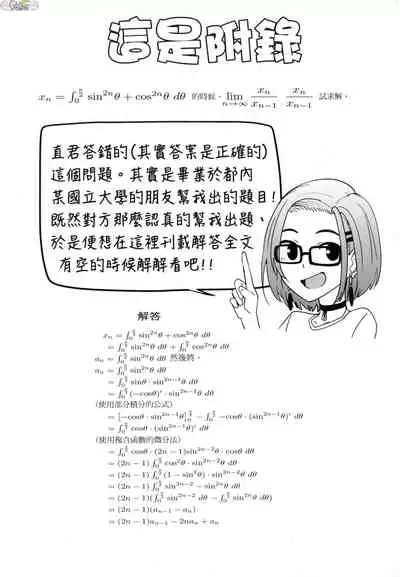 這是附錄
xₙ = ∫₀^{π/2} sin²ⁿθ + cos²ⁿθ dθ 的時候、lim_{n→∞} xₙ/xₙ₋₁ xₙ/xₙ₋₁ 試求解。
直君答錯的(其實答案是正確的)
這個問題。其實是畢業於都內
某國立大學的朋友幫我出的題目!
既然對方那麼認真的幫我出題、
於是便想在這裡刊載解答全文
有空的時候解解看吧!!
解答
xₙ = ∫₀^{π/2} sin²ⁿθ + cos²ⁿθ dθ
= ∫₀^{π/2} sin²ⁿθ dθ + ∫₀^{π/2} cos²ⁿθ dθ
aₙ = ∫₀^{π/2} sin²ⁿθ dθ 然後將、
aₙ = ∫₀^{π/2} sin²ⁿθ dθ
= ∫₀^{π/2} sinθ · sin²ⁿ⁻¹θ dθ
= ∫₀^{π/2} (−cosθ)′ · sin²ⁿ⁻¹θ dθ
(使用部分積分的公式)
= [−cosθ · sin²ⁿ⁻¹θ] − ∫₀^{π/2} −cosθ · (sin²ⁿ⁻¹θ)′ dθ
= ∫₀^{π/2} cosθ · (sin²ⁿ⁻¹θ)′ dθ
(使用複合函數的微分法)
= ∫₀^{π/2} cosθ · (2n−1) sin²ⁿ⁻²θ · cosθ dθ
= (2n−1) ∫₀^{π/2} cos²θ · sin²ⁿ⁻²θ dθ
= (2n−1) ∫₀^{π/2} (1−sin²θ) · sin²ⁿ⁻²θ dθ
= (2n−1) ∫₀^{π/2} sin²ⁿ⁻²θ − sin²ⁿθ dθ
= (2n−1)(∫₀^{π/2} sin²ⁿ⁻²θ dθ − ∫₀^{π/2} sin²ⁿθ dθ)
= (2n−1)(aₙ₋₁ − aₙ)
= (2n−1)aₙ₋₁ − 2naₙ + aₙ